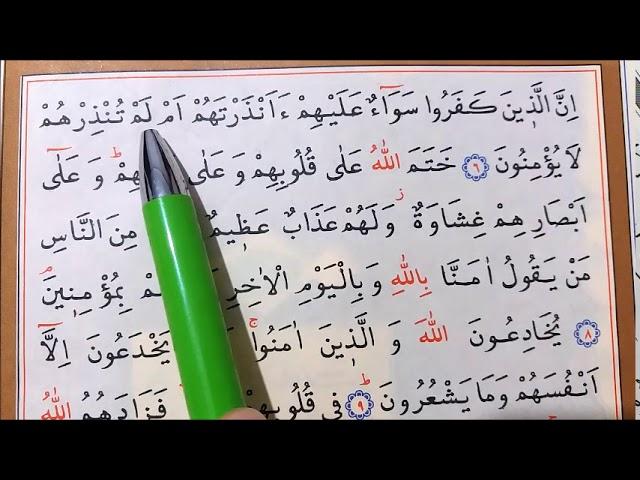 اِنَّ الَّذ۪ينَ كَفَرُوا سَوَٓاءٌ عَلَيْهِمْ ءَاَنْذَرْتَهُمْ اَمْ لَمْ تُنْذِرْهُمْ
لَا يُؤْمِنُونَ ﴿٦﴾ خَتَمَ اللّٰهُ عَلٰى قُلُوبِهِمْ وَ عَلٰى هِمْ ط وَ عَلٰٓى
اَبْصَارِهِمْ غِشَاوَةٌ ز وَلَهُمْ عَذَابٌ عَظ۪يمٌ مِنَ النَّاسِ
مَنْ يَقُولُ اٰمَنَّا بِاللّٰهِ وَ بِالْيَوْمِ الْاٰخِرِ مْ بِمُؤْمِن۪ينَ م
﴿٨﴾ يُخَادِعُونَ اللّٰهَ وَ الَّذ۪ينَ اٰمَنُوا ج يَخْدَعُونَ اِلَّٓا
اَنْفُسَهُمْ وَمَا يَشْعُرُونَ ط ﴿٩﴾ ف۪ي قُلُوبِهِمْ فَزَادَهُمُ اللّٰهُ